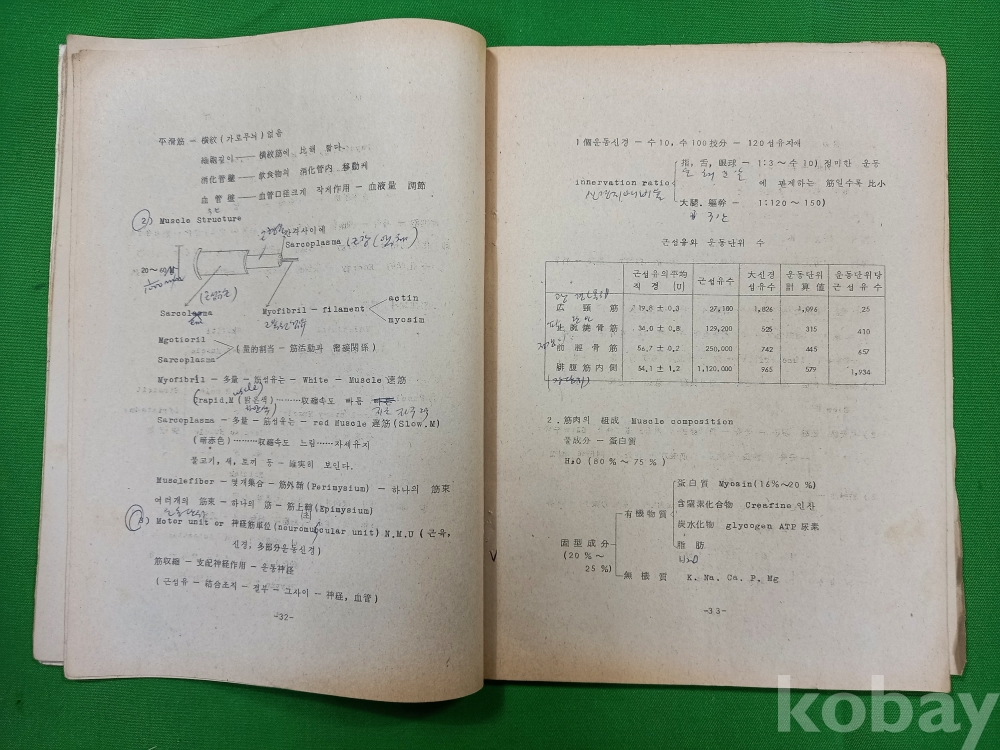 平滑筋 — 橫紋(가로무늬)없음
細胞길이 —— 橫紋筋에 比해 짧다.
消化管壁 —— 飮食物의 消化管内 移動케
血管壁 —— 血管口徑크게 작게作用 — 血液量 調節
② Muscle Structure
Sarcoplasma
20~60
Sarcolasma
Myofibril — filament
actin
myosim
Mgotioril
Sarcoplasma
(量的割当 — 筋活動과 需要関係)
Myofibril — 多量 — 筋섬유는 — White — Muscle 速筋
(rapid.M (밝은색) ……… 収縮速度 빠름
Sarcoplasma — 多量 — 筋섬유는 — red Muscle 遅筋(Slow.M)
(暗赤色) ……… 収縮速度 느림 …… 자세유지
물고기, 새, 토끼 등 — 確実히 보인다.
Musclefiber — 몇개集合 — 筋外鞘(Perimysium) — 하나의 筋束
여러개의 筋束 — 하나의 筋 — 筋上鞘(Epimysium)
③ Motor unit or 神経筋単位(neuromuscular unit) N.M.U (근육,
신경, 多部分운동신경)
筋収縮 — 支配神経作用 — 운동神経
(근섬유 — 結合조직 — 결부 — 그사이 — 神経, 血管)
-32-
1個운동신경 — 수10, 수100技分 — 120섬유지배
innervation ratio
指, 舌, 眼球 — 1:3~수10) 정미한 운동
에 관계하는 筋일수록 比小
大腿. 軀幹 — 1:120~150)
근섬유와 운동단위 수
근섬유의平均 直径(U) 근섬유수 大신경섬유수 운동단위計算値 운동단위당근섬유수
広頸筋 19.8 ± 0.3 27,180 1,826 1,096 25
上腕橈骨筋 34.0 ± 0.8 129,200 525 315 410
前脛骨筋 56.7 ± 0.2 250,000 742 445 657
腓腹筋内側 54.1 ± 1.2 1,120,000 965 579 1,934
2. 筋肉의 組成 Muscle composition
물成分 — 蛋白質
H₂O (80%~75%)
固型成分
(20%~
25%)
有機物質
蛋白質 Myosin(16%~20%)
含窒素化合物 Creafine인산
炭水化物 glycogen ATP尿素
脂肪
H₂O
無機質 K. Na. Ca. P. Mg
-33-
kobay